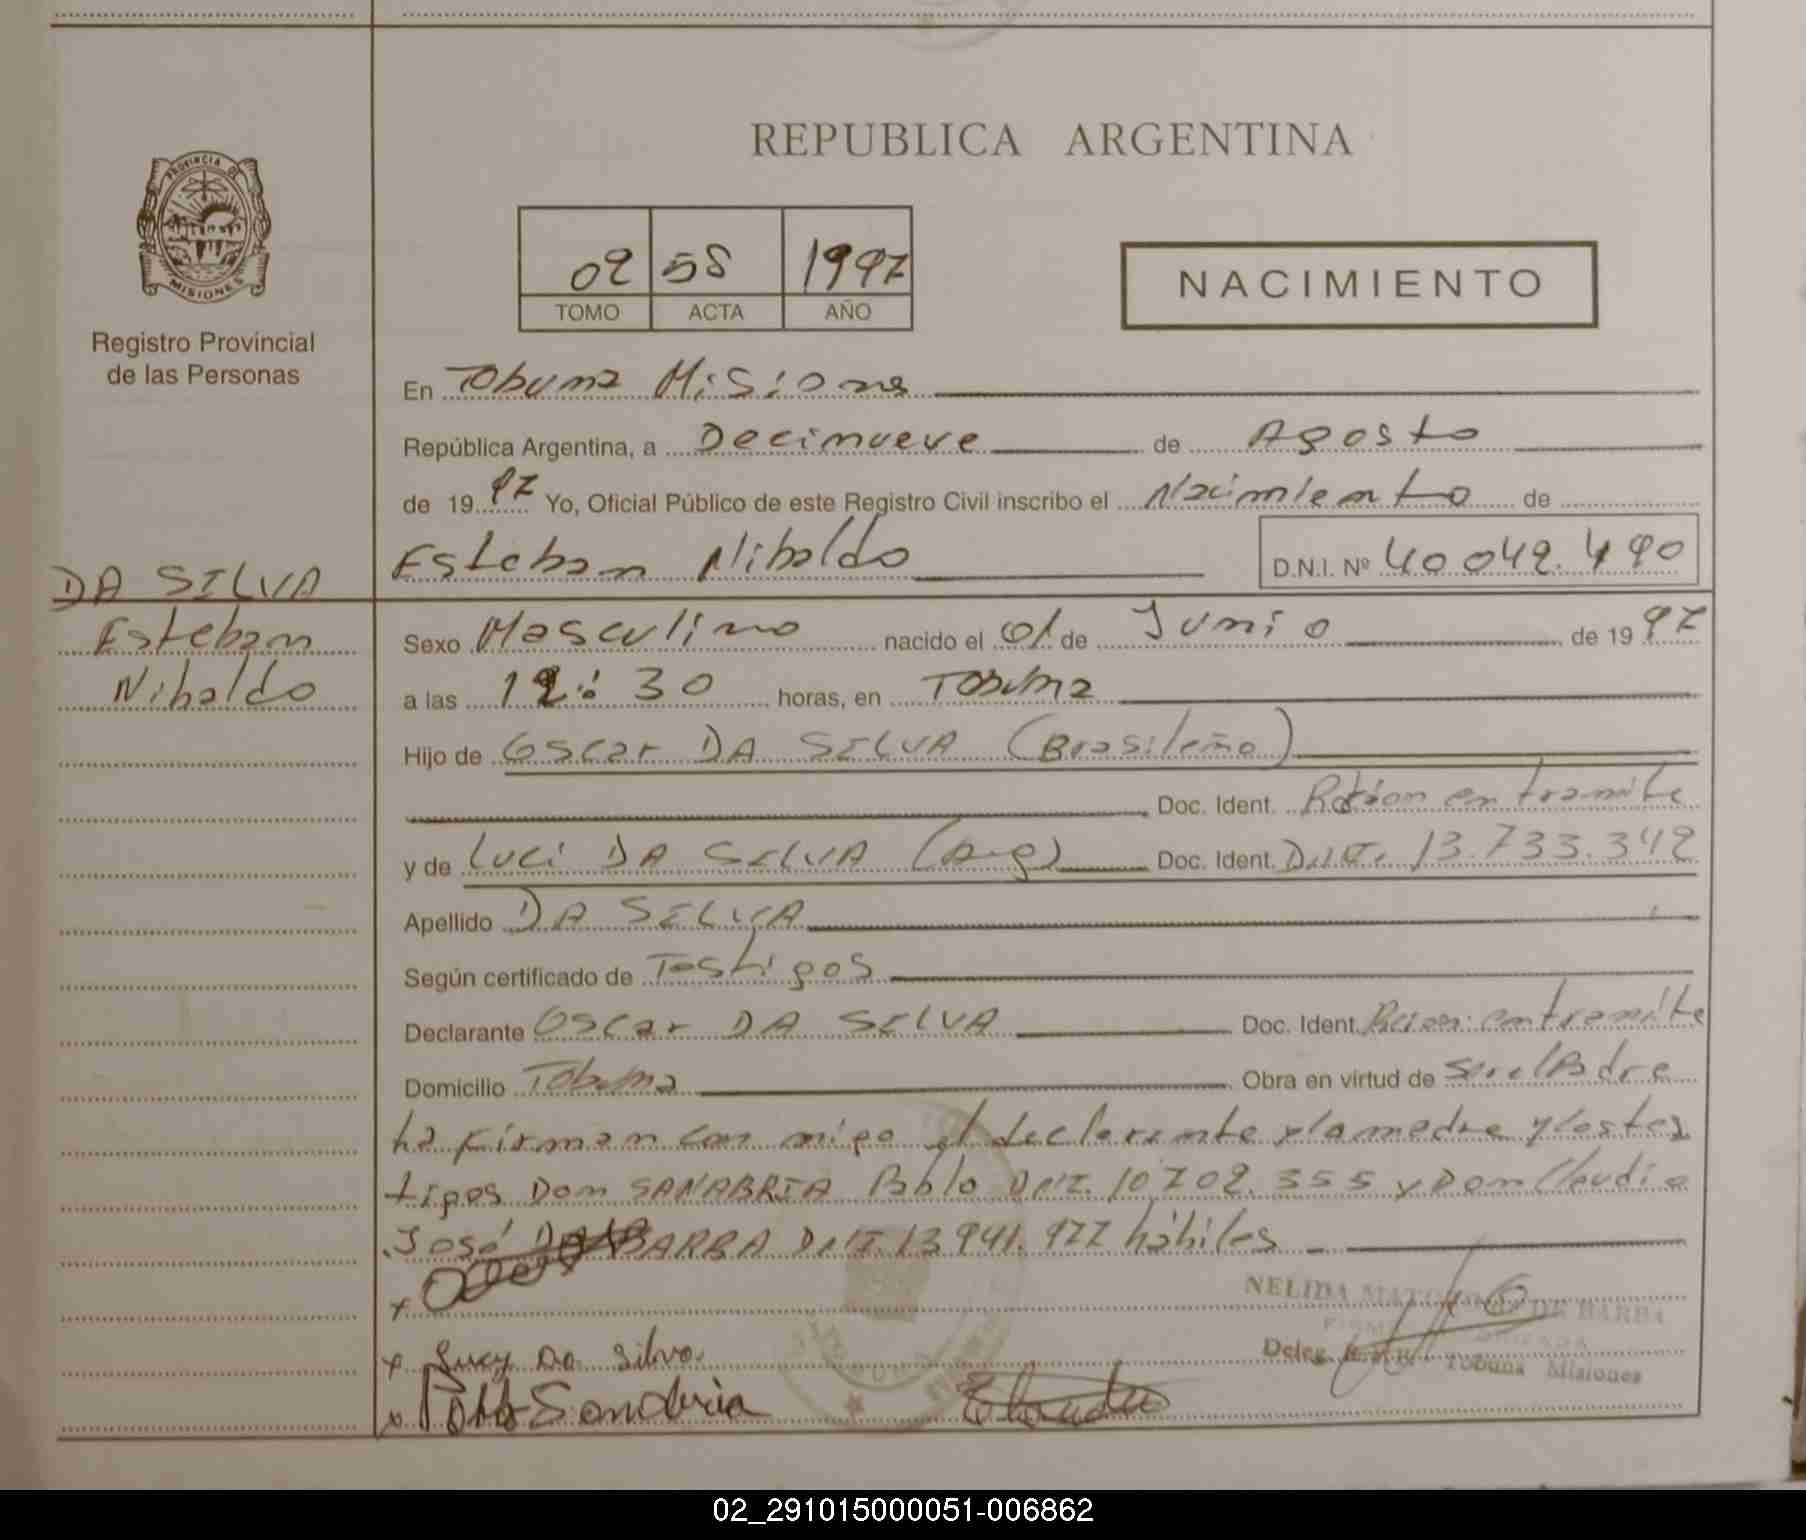 REPUBLICA ARGENTINA
PROVINCIA DE
MISIONES
Registro Provincial
de las Personas
02 58 1997
TOMO ACTA AÑO
NACIMIENTO
En Tobuna Misiones
República Argentina, a Decinueve de Agosto
de 19 97 Yo, Oficial Público de este Registro Civil inscribo el Nacimiento de
Esteban Nibaldo D.N.I. Nº 40 042.490
DA SILVA
Esteban
Nibaldo
Sexo Masculino nacido el 01 de Junio de 19 97
a las 12:30 horas, en Tobuna
Hijo de Oscar DA SILVA (Brasileño)
Doc. Ident. en tramite
y de Luci DA SILVA (Arg) Doc. Ident. D.N.I. 13.733.342
Apellido DA SILVA
Según certificado de Testigos
Declarante Oscar DA SILVA Doc. Ident. en tramite
Domicilio Tobuna Obra en virtud de ser el Padre
ha firman con migo el declarante y la madre y los tes
tigos Don SANABRIA Pablo DNI. 10702.355 y Don Claudio
José BARBA DNI. 13941.977 hábiles
x
NELIDA DE BARBA
x Lucy Da Silva
Deleg. Tobuna Misiones
x Pablo Sanabria
02_291015000051-006862